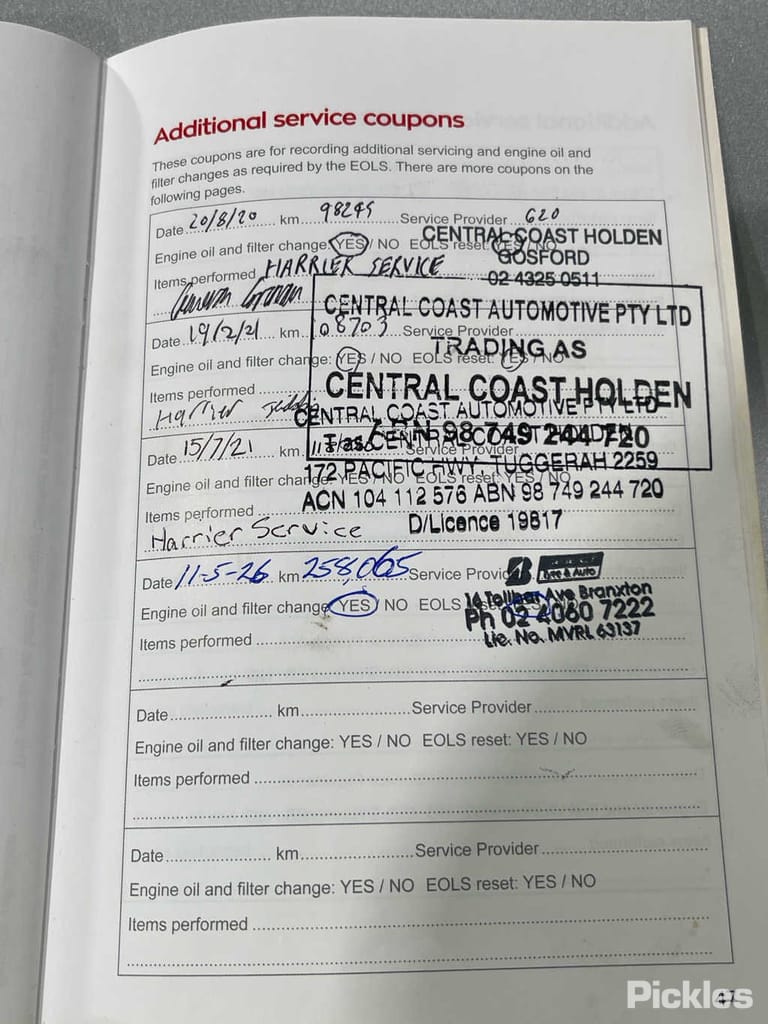 Additional service coupons
These coupons are for recording additional servicing and engine oil and
filter changes as required by the EOLS. There are more coupons on the
following pages.
Date 20/8/20 km 98245 Service Provider 620
CENTRAL COAST HOLDEN
Engine oil and filter change: YES / NO EOLS reset: YES / NO
GOSFORD
Items performed HARRIER SERVICE
02 4325 0511
CENTRAL COAST AUTOMOTIVE PTY LTD
Date 19/2/21 km 08703 Service Provider
TRADING AS
Engine oil and filter change: YES / NO EOLS reset: YES / NO
CENTRAL COAST HOLDEN
Items performed
Harrier
CENTRAL COAST AUTOMOTIVE PTY LTD
T/as CENTRAL COAST HOLDEN
ABN 98 749 244 720
Date 15/7/21 km Service Provider
172 PACIFIC HWY TUGGERAH 2259
Engine oil and filter change: YES / NO EOLS reset: YES / NO
ACN 104 112 576 ABN 98 749 244 720
Items performed
D/Licence 19817
Harrier Service
Date 11-5-26 km 258,065 Service Provider
Tyre & Auto
14 Tollbar Ave Branxton
Engine oil and filter change YES / NO EOLS reset: YES
Ph 02 4060 7222
Items performed
Lic. No. MVRL 63137
Date km Service Provider
Engine oil and filter change: YES / NO EOLS reset: YES / NO
Items performed
Date km Service Provider
Engine oil and filter change: YES / NO EOLS reset: YES / NO
Items performed
47
Pickles